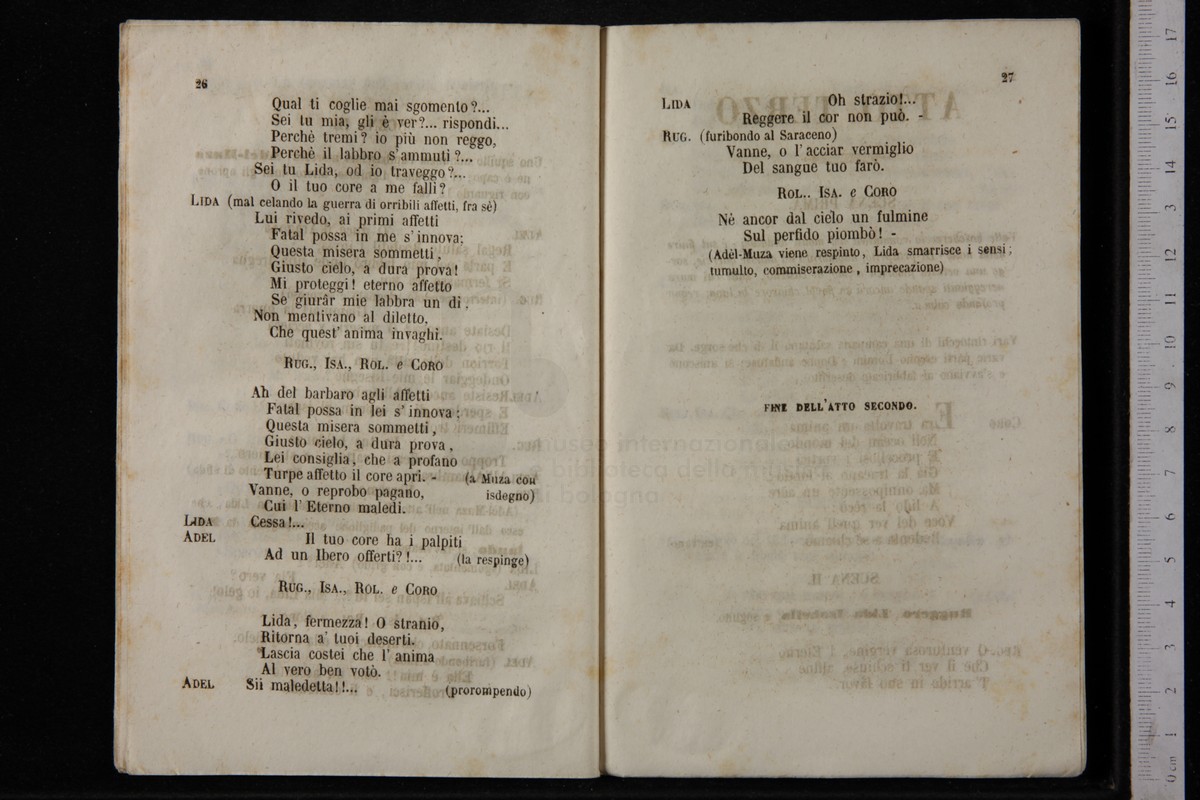 26
Qual ti coglie mai sgomento?...
Sei tu mia, gli è ver?... rispondi...
Perchè tremi? io più non reggo,
Perchè il labbro s'ammuti?...
Sei tu Lida, od io traveggo?...
O il tuo core a me fallì?
LIDA (mal celando la guerra di orribili affetti, fra sè)
Lui rivedo, ai primi affetti
Fatal possa in me s'innova:
Questa misera sommetti,
Giusto cielo, a dura prova!
Mi proteggi! eterno affetto
Se giurâr mie labbra un dì,
Non mentivano al diletto.
Che quest' anima invaghì.
RUG., ISA., ROL. e CORO
Ah del barbaro agli affetti
Fatal possa in lei s'innova:
Questa misera sommetti,
Giusto cielo, a dura prova,
Lei consiglia, che a profano
Turpe affetto il core aprì. - (a Muza con
Vanne, o reprobo pagano, isdegno)
Cui l'Eterno maledì.
LIDA Cessa!...
ADEL Il tuo core ha i palpiti
Ad un Ibero offerti?!... (la respinge)
RUG., ISA., ROL. e CORO
Lida, fermezza! O stranio,
Ritorna a' tuoi deserti.
Lascia costei che l'anima
Al vero ben votò.
ADEL Sii maledetta!!... (prorompendo)
27
LIDA Oh strazio!...
Reggere il cor non può. -
RUG. (furibondo al Saraceno)
Vanne, o l'acciar vermiglio
Del sangue tuo farò.
ROL.. ISA. e CORO
Nè ancor dal cielo un fulmine
Sul perfido piombò! -
(Adèl-Muza viene respinto, Lida smarrisce i sensi;
tumulto, commiserazione, imprecazione)
FINE DELL'ATTO SECONDO.
museo internazionale
e biblioteca della musica
di bologna
0 cm 1 2 3 4 5 6 7 8 9 10 11 12 13 14 15 16 17